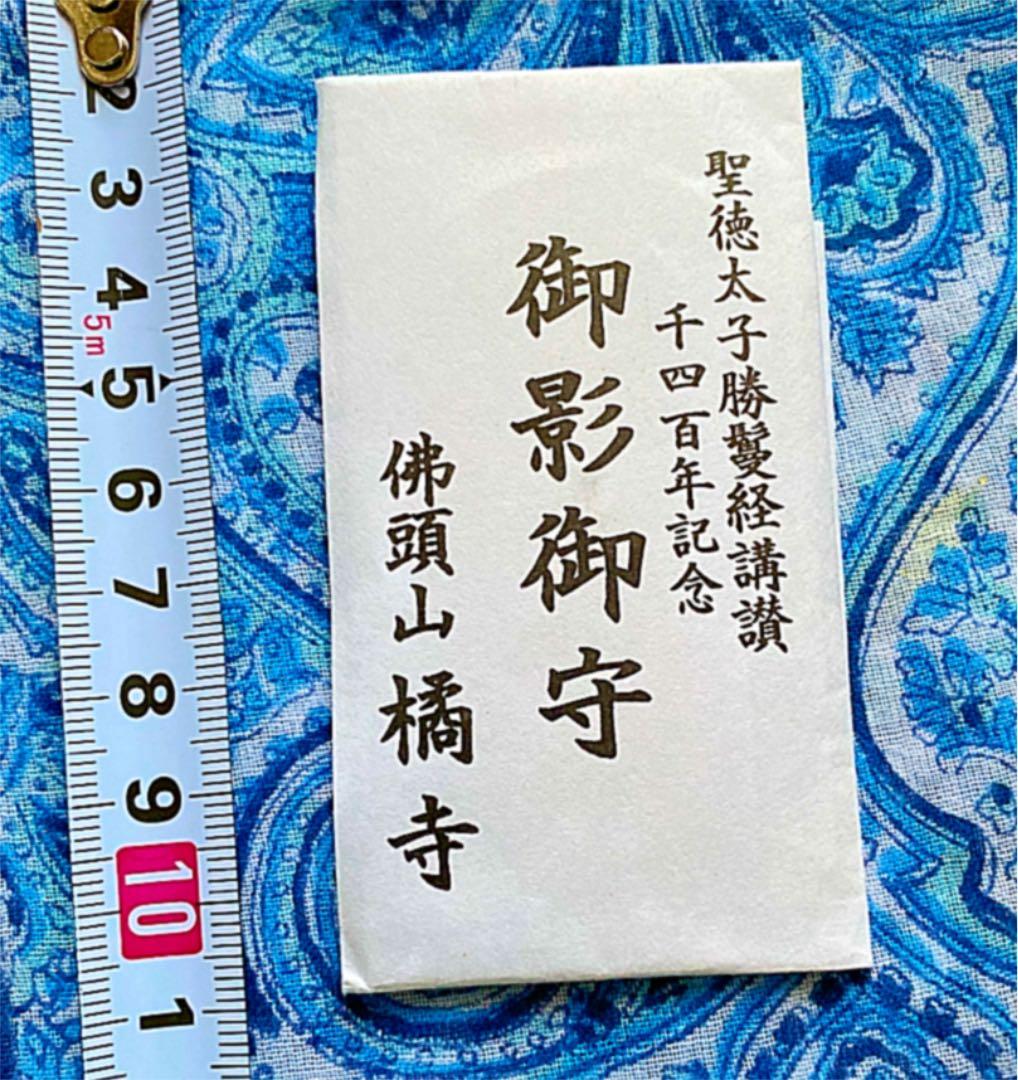 聖徳太子勝鬘経講讃
千四百年記念
御影御守
佛頭山橘寺
2
3
4
5m
5
6
7
8
9
10
1